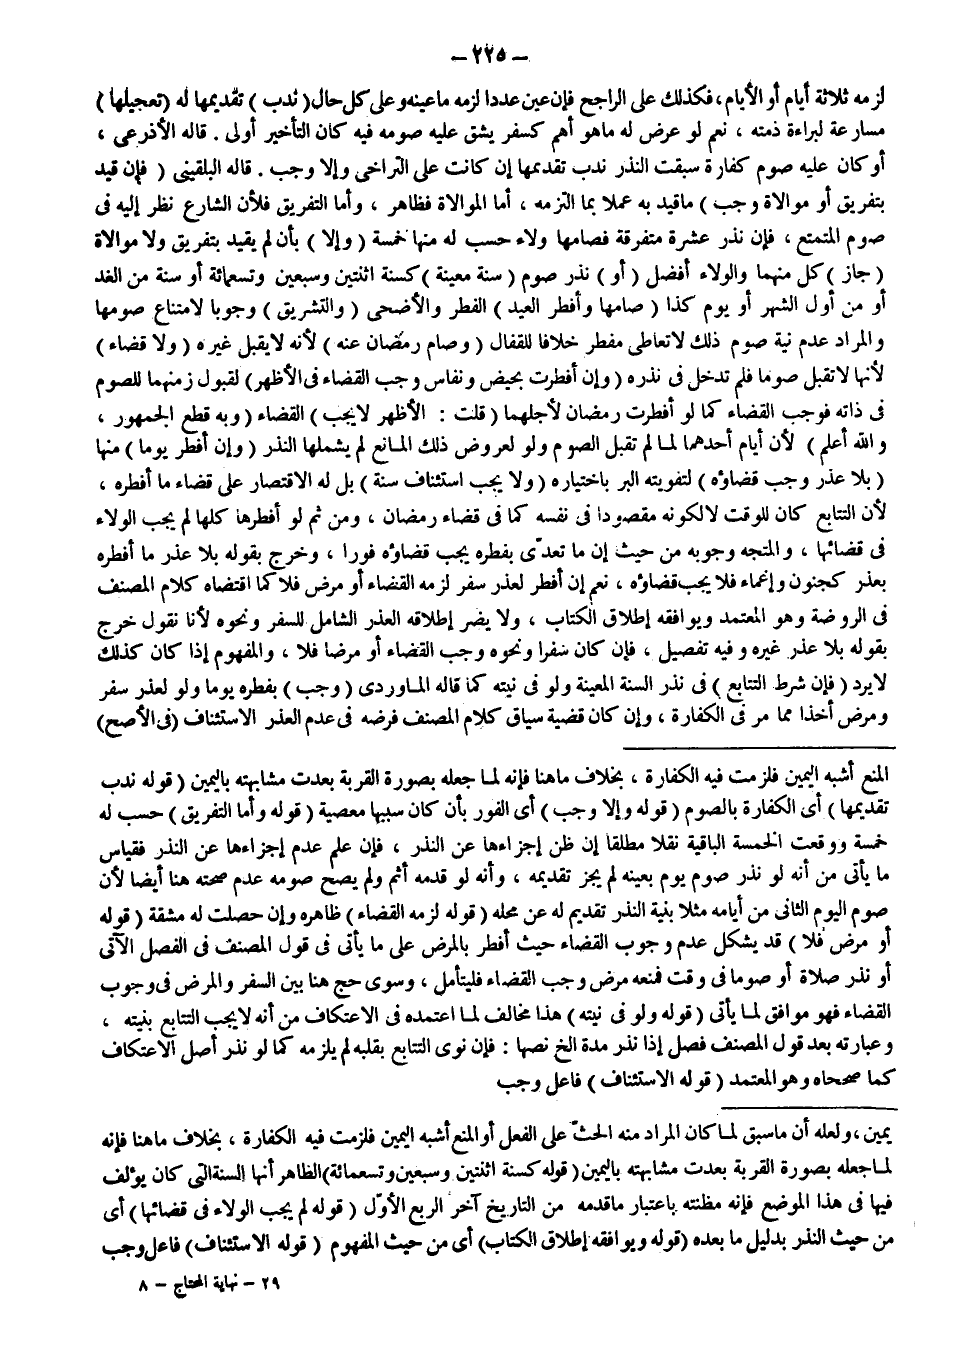 - ٢٢٥ -
لزمه ثلاثة أيام أو الأيام، فكذلك على الراجح فإن عين عددا لزمه ما عينه وعلى كل حال ( ندب ) تقديمها له (تعجيلها)
مسارعة لبراءة ذمته ، نعم لو عرض له ماهو أهم كسفر يشق عليه صومه فيه كان التأخير أولى . قاله الأذرعى ،
أو كان عليه صوم كفارة سبقت النذر ندب تقديمها إن كانت على التراخى وإلا وجب . قاله البلقينى ( فإن قيد
بتفريق أو موالاة وجب ) ماقيد به عملا بما التزمه ، أما الموالاة فظاهر ، وأما التفريق فلأن الشارع نظر إليه فى
صوم المتمتع ، فإن نذر عشرة متفرقة فصامها ولاء حسب له منها خمسة ( وإلا ) بأن لم يقيد بتفريق ولا موالاة
( جاز ) كل منهما والولاء أفضل ( أو ) نذر صوم ( سنة معينة ) كسنة اثنتين وسبعين وتسعمائة أو سنة من الغد
أو من أول الشهر أو يوم كذا ( صامها وأفطر العيد ) الفطر والأضحى ( والتشريق ) وجوبا لامتناع صومها
والمراد عدم نية صوم ذلك لاتعاطى مفطر خلافا للقفال ( وصام رمضان عنه ) لأنه لايقبل غيره ( ولا قضاء )
لأنها لاتقبل صوما فلم تدخل فى نذره ( وإن أفطرت بحيض ونفاس وجب القضاء فى الأظهر) لقبول زمنهما للصوم
فى ذاته فوجب القضاء كما لو أفطرت رمضان لأجلهما ( قلت : الأظهر لايجب ) القضاء ( وبه قطع الجمهور ،
والله أعلم ) لأن أيام أحدهما لما لم تقبل الصوم ولو لعروض ذلك المانع لم يشملها النذر ( وإن أفطر يوما ) منها
( بلا عذر وجب قضاؤه ) لتفويته البر باختياره ( ولا يجب استئناف سنة ) بل له الاقتصار على قضاء ما أفطره ،
لأن التتابع كان للوقت لالكونه مقصودا فى نفسه كما فى قضاء رمضان ، ومن ثم لو أفطرها كلها لم يجب الولاء
فى قضائها ، والمتجه وجوبه من حيث إن ما تعدّى بفطره يجب قضاؤه فورا ، وخرج بقوله بلا عذر ما أفطره
بعذر كجنون وإغماء فلا يجب قضاؤه ، نعم إن أفطر لعذر سفر لزمه القضاء أو مرض فلا كما اقتضاه كلام المصنف
فى الروضة وهو المعتمد ويوافقه إطلاق الكتاب ، ولا يضر إطلاقه العذر الشامل للسفر ونحوه لأنا نقول خرج
بقوله بلا عذر غيره وفيه تفصيل ، فإن كان سفرا ونحوه وجب القضاء أو مرضا فلا ، والمفهوم إذا كان كذلك
لايرد ( فإن شرط التتابع ) فى نذر السنة المعينة ولو فى نيته كما قاله الماوردى ( وجب ) بفطره يوما ولو لعذر سفر
ومرض أخذا مما مر فى الكفارة ، وإن كان قضية سياق كلام المصنف فرضه فى عدم العذر الاستئناف (فى الأصح)
المنع أشبه اليمين فلزمت فيه الكفارة ، بخلاف ماهنا فإنه لما جعله بصورة القربة بعدت مشابهته باليمين ( قوله ندب
تقديمها ) أى الكفارة بالصوم ( قوله وإلا وجب ) أى الفور بأن كان سببها معصية ( قوله وأما التفريق ) حسب له
خمسة ووقعت الخمسة الباقية نفلا مطلقا إن ظن إجزاءها عن النذر ، فإن علم عدم إجزاءها عن النذر فقياس
ما يأتى من أنه لو نذر صوم يوم بعينه لم يجز تقديمه ، وأنه لو قدمه أثم ولم يصح صومه عدم صحته هنا أيضا لأن
صوم اليوم الثانى من أيامه مثلا بنية النذر تقديم له عن محله ( قوله لزمه القضاء ) ظاهره وإن حصلت له مشقة ( قوله
أو مرض فلا ) قد يشكل عدم وجوب القضاء حيث أفطر بالمرض على ما يأتى فى قول المصنف فى الفصل الآتى
أو نذر صلاة أو صوما فى وقت فمنعه مرض وجب القضاء فليتأمل ، وسوى حج هنا بين السفر والمرض فى وجوب
القضاء فهو موافق لما يأتى ( قوله ولو فى نيته ) هذا مخالف لما اعتمده فى الاعتكاف من أنه لايجب التتابع بنيته ،
وعبارته بعد قول المصنف فصل إذا نذر مدة الخ نصها : فإن نوى التتابع بقلبه لم يلزمه كما لو نذر أصل الاعتكاف
كما صححاه وهو المعتمد ( قوله الاستئناف ) فاعل وجب
يمين، ولعله أن ماسبق لما كان المراد منه الحثّ على الفعل أو المنع أشبه اليمين فلزمت فيه الكفارة ، بخلاف ماهنا فإنه
لما جعله بصورة القربة بعدت مشابهته باليمين ( قوله كسنة اثنتين وسبعين وتسعمائة) الظاهر أنها السنة التى كان يؤلف
فيها فى هذا الموضع فإنه مظنته باعتبار ماقدمه من التاريخ آخر الربع الأوّل ( قوله لم يجب الولاء فى قضائها ) أى
من حيث النذر بدليل ما بعده (قوله ويوافقه إطلاق الكتاب) أى من حيث المفهوم ( قوله الاستئناف) فاعل وجب
٢٩ - نهاية المحتاج - ٨